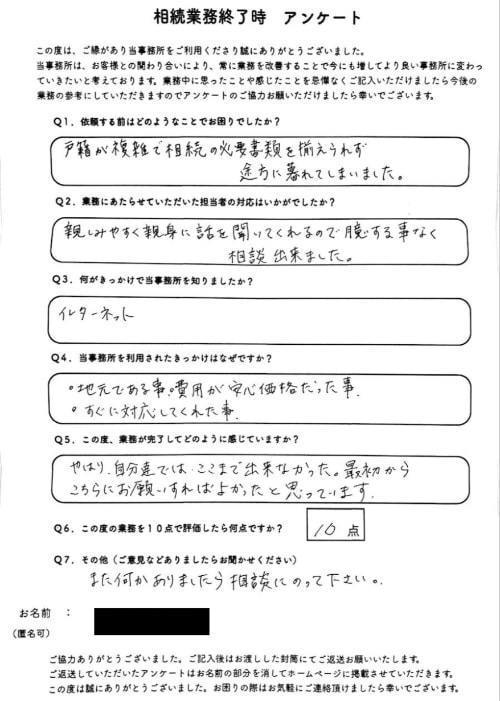 相続業務終了時　アンケート
この度は、ご縁があり当事務所をご利用くださり誠にありがとうございました。
当事務所は、お客様との関わり合いにより、常に業務を改善することで今にも増してより良い事務所に変わっ
ていきたいと考えております。業務中に思ったことや感じたことを忌憚なくご記入いただけましたら今後の
業務の参考にしていただきますのでアンケートのご協力お願いいただけましたら幸いでございます。
Q1．依頼する前はどのようなことでお困りでしたか？
戸籍が複雑で相続の必要書類を揃えられず
途方に暮れてしまいました。
Q2．業務にあたらせていただいた担当者の対応はいかがでしたか？
親しみやすく親身に話を聞いてくれるので臆する事なく
相談出来ました。
Q3．何がきっかけで当事務所を知りましたか？
インターネット
Q4．当事務所を利用されたきっかけはなぜですか？
・地元である事・費用が安心価格だった事、
・すぐに対応してくれた事、
Q5．この度、業務が完了してどのように感じていますか？
やはり、自分達では、ここまで出来なかった。最初から
こちらにお願いすればよかったと思っています。
Q6．この度の業務を１０点で評価したら何点ですか？
10 点
Q7．その他（ご意見などありましたらお聞かせください）
また何かありましたら相談にのって下さい。
お名前　：
（匿名可）
ご協力ありがとうございました。ご記入後はお渡しした封筒にてご返送お願いいたします。
ご返送していただいたアンケートはお名前の部分を消してホームページに掲載させていただきます。
この度は誠にありがとうございました。お困りの際はお気軽にご連絡頂けましたら幸いでございます。